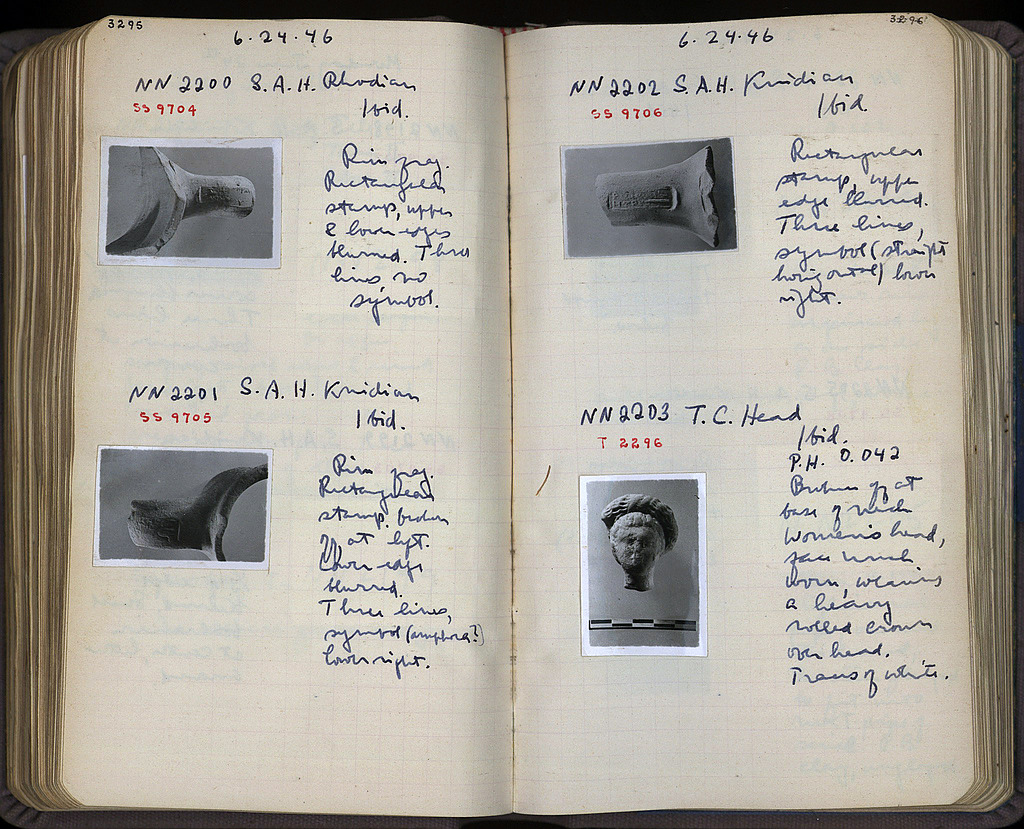 3295
6.24.46
NN 2200 S.A.H. Rhodian
SS 9704
Ibid.
Rim frag.
Rectangular
stamp, upper
& lower edges
blurred. Three
lines, no
symbol.
NN 2201 S.A.H. Knidian
SS 9705
Ibid.
Rim frag.
Rectangular
stamp, broken
off at left.
Lower edge
blurred.
Three lines,
symbol (amphora?)
lower right.
3296
6.24.46
NN 2202 S.A.H. Knidian
SS 9706
Ibid.
Rectangular
stamp, upper
edge blurred.
Three lines,
symbol (straight
horizontal) lower
right.
NN 2203 T.C. Head
T 2296
Ibid.
P.H. 0.042
Broken off at
base of neck
Women's head,
face much
worn, wearing
a heavy
rolled crown
over head.
Traces of white.